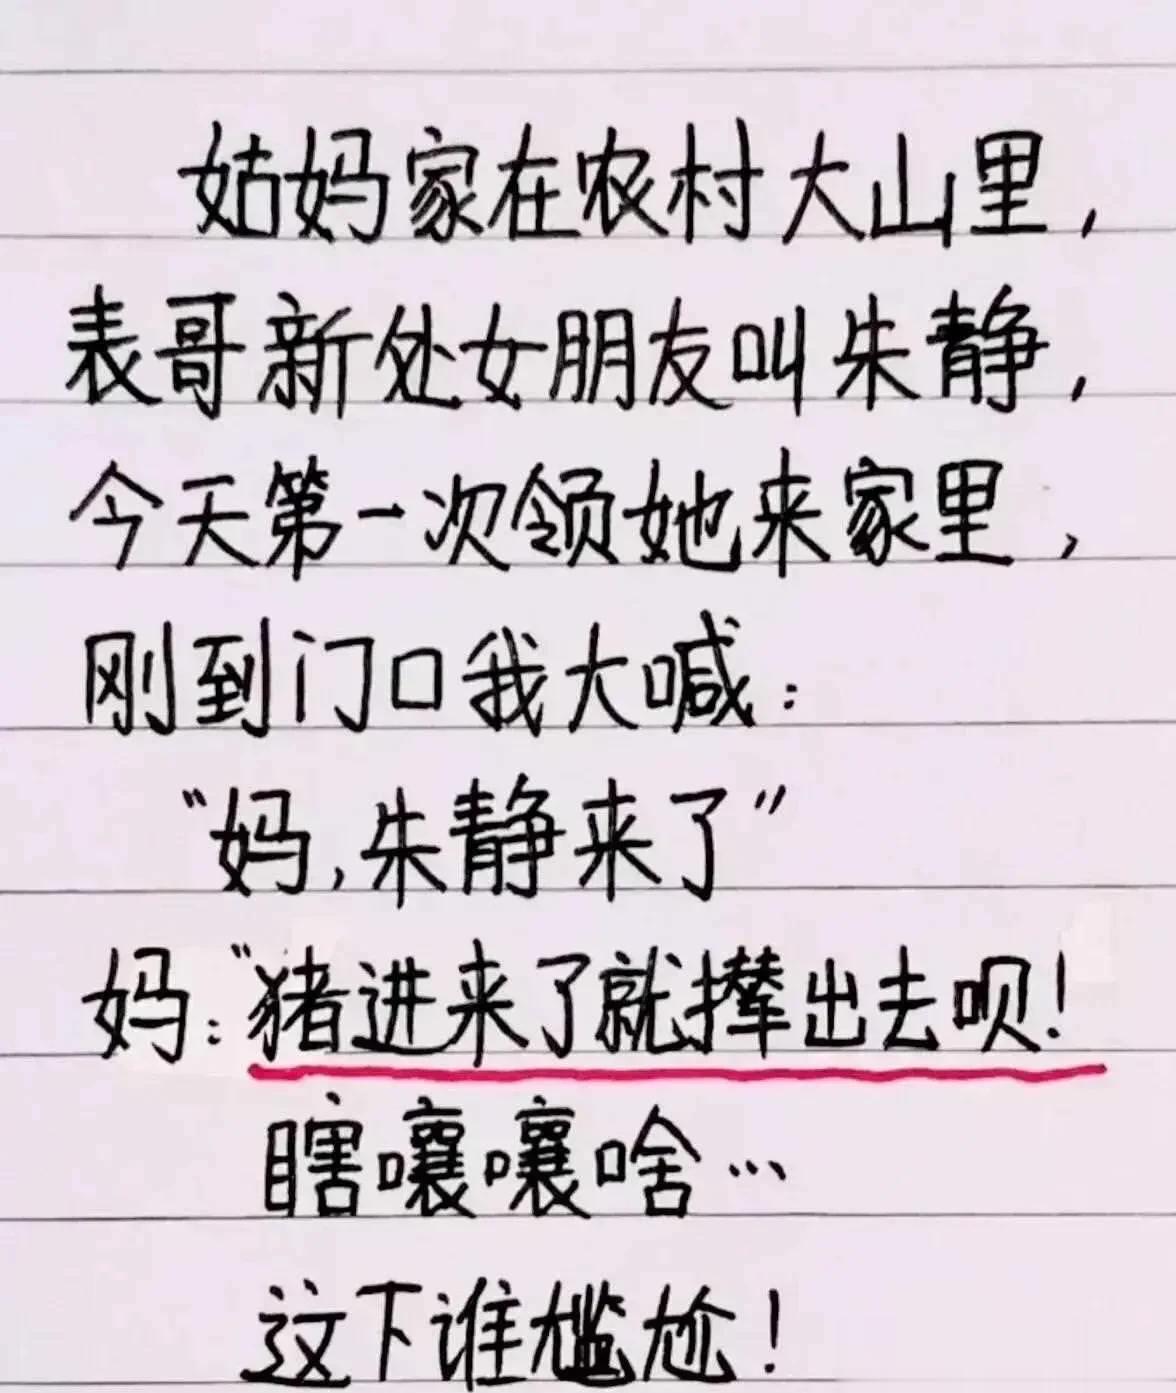 姑妈家在农村大山里,
表哥新处女朋友叫朱静,
今天第一次领她来家里,
刚到门口我大喊:
“妈,朱静来了”
妈:“猪进来了就撵出去呗!
瞎嚷嚷啥…
这下谁尴尬!